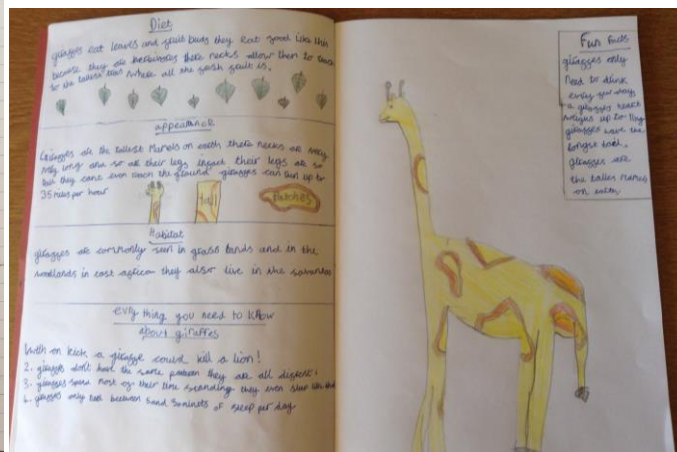 Diet
giraffes eat leaves and fruit buds they eat food like this
because they are herbivores there necks allow them to reach
to the tallest trees where all the fresh fruit is.
appearance
Giraffes are the tallest mamels on earth there necks are very
very long and so are their legs infact their legs are so
tall they cant even reach the ground giraffes can run up to
35 miles per hour
tall
patches
Habitat
giraffes are commonly seen in grass lands and in the
woodlands in east africa they also live in the savannas
evry thing you need to know
about giraffes
1. with on kick a giraffe could kill a lion!
2. giraffes don't have the same pattern they are all difrent.
3. giraffes spend most of their time standing they even
4. giraffes only between 5 and 30 minets of sleep per day
Fun Facts
giraffes only
need to drink
every few days
a giraffes heart
weighs up to 11kg
giraffes have the
longest tail.
giraffes are
the tallest mamels
on earth